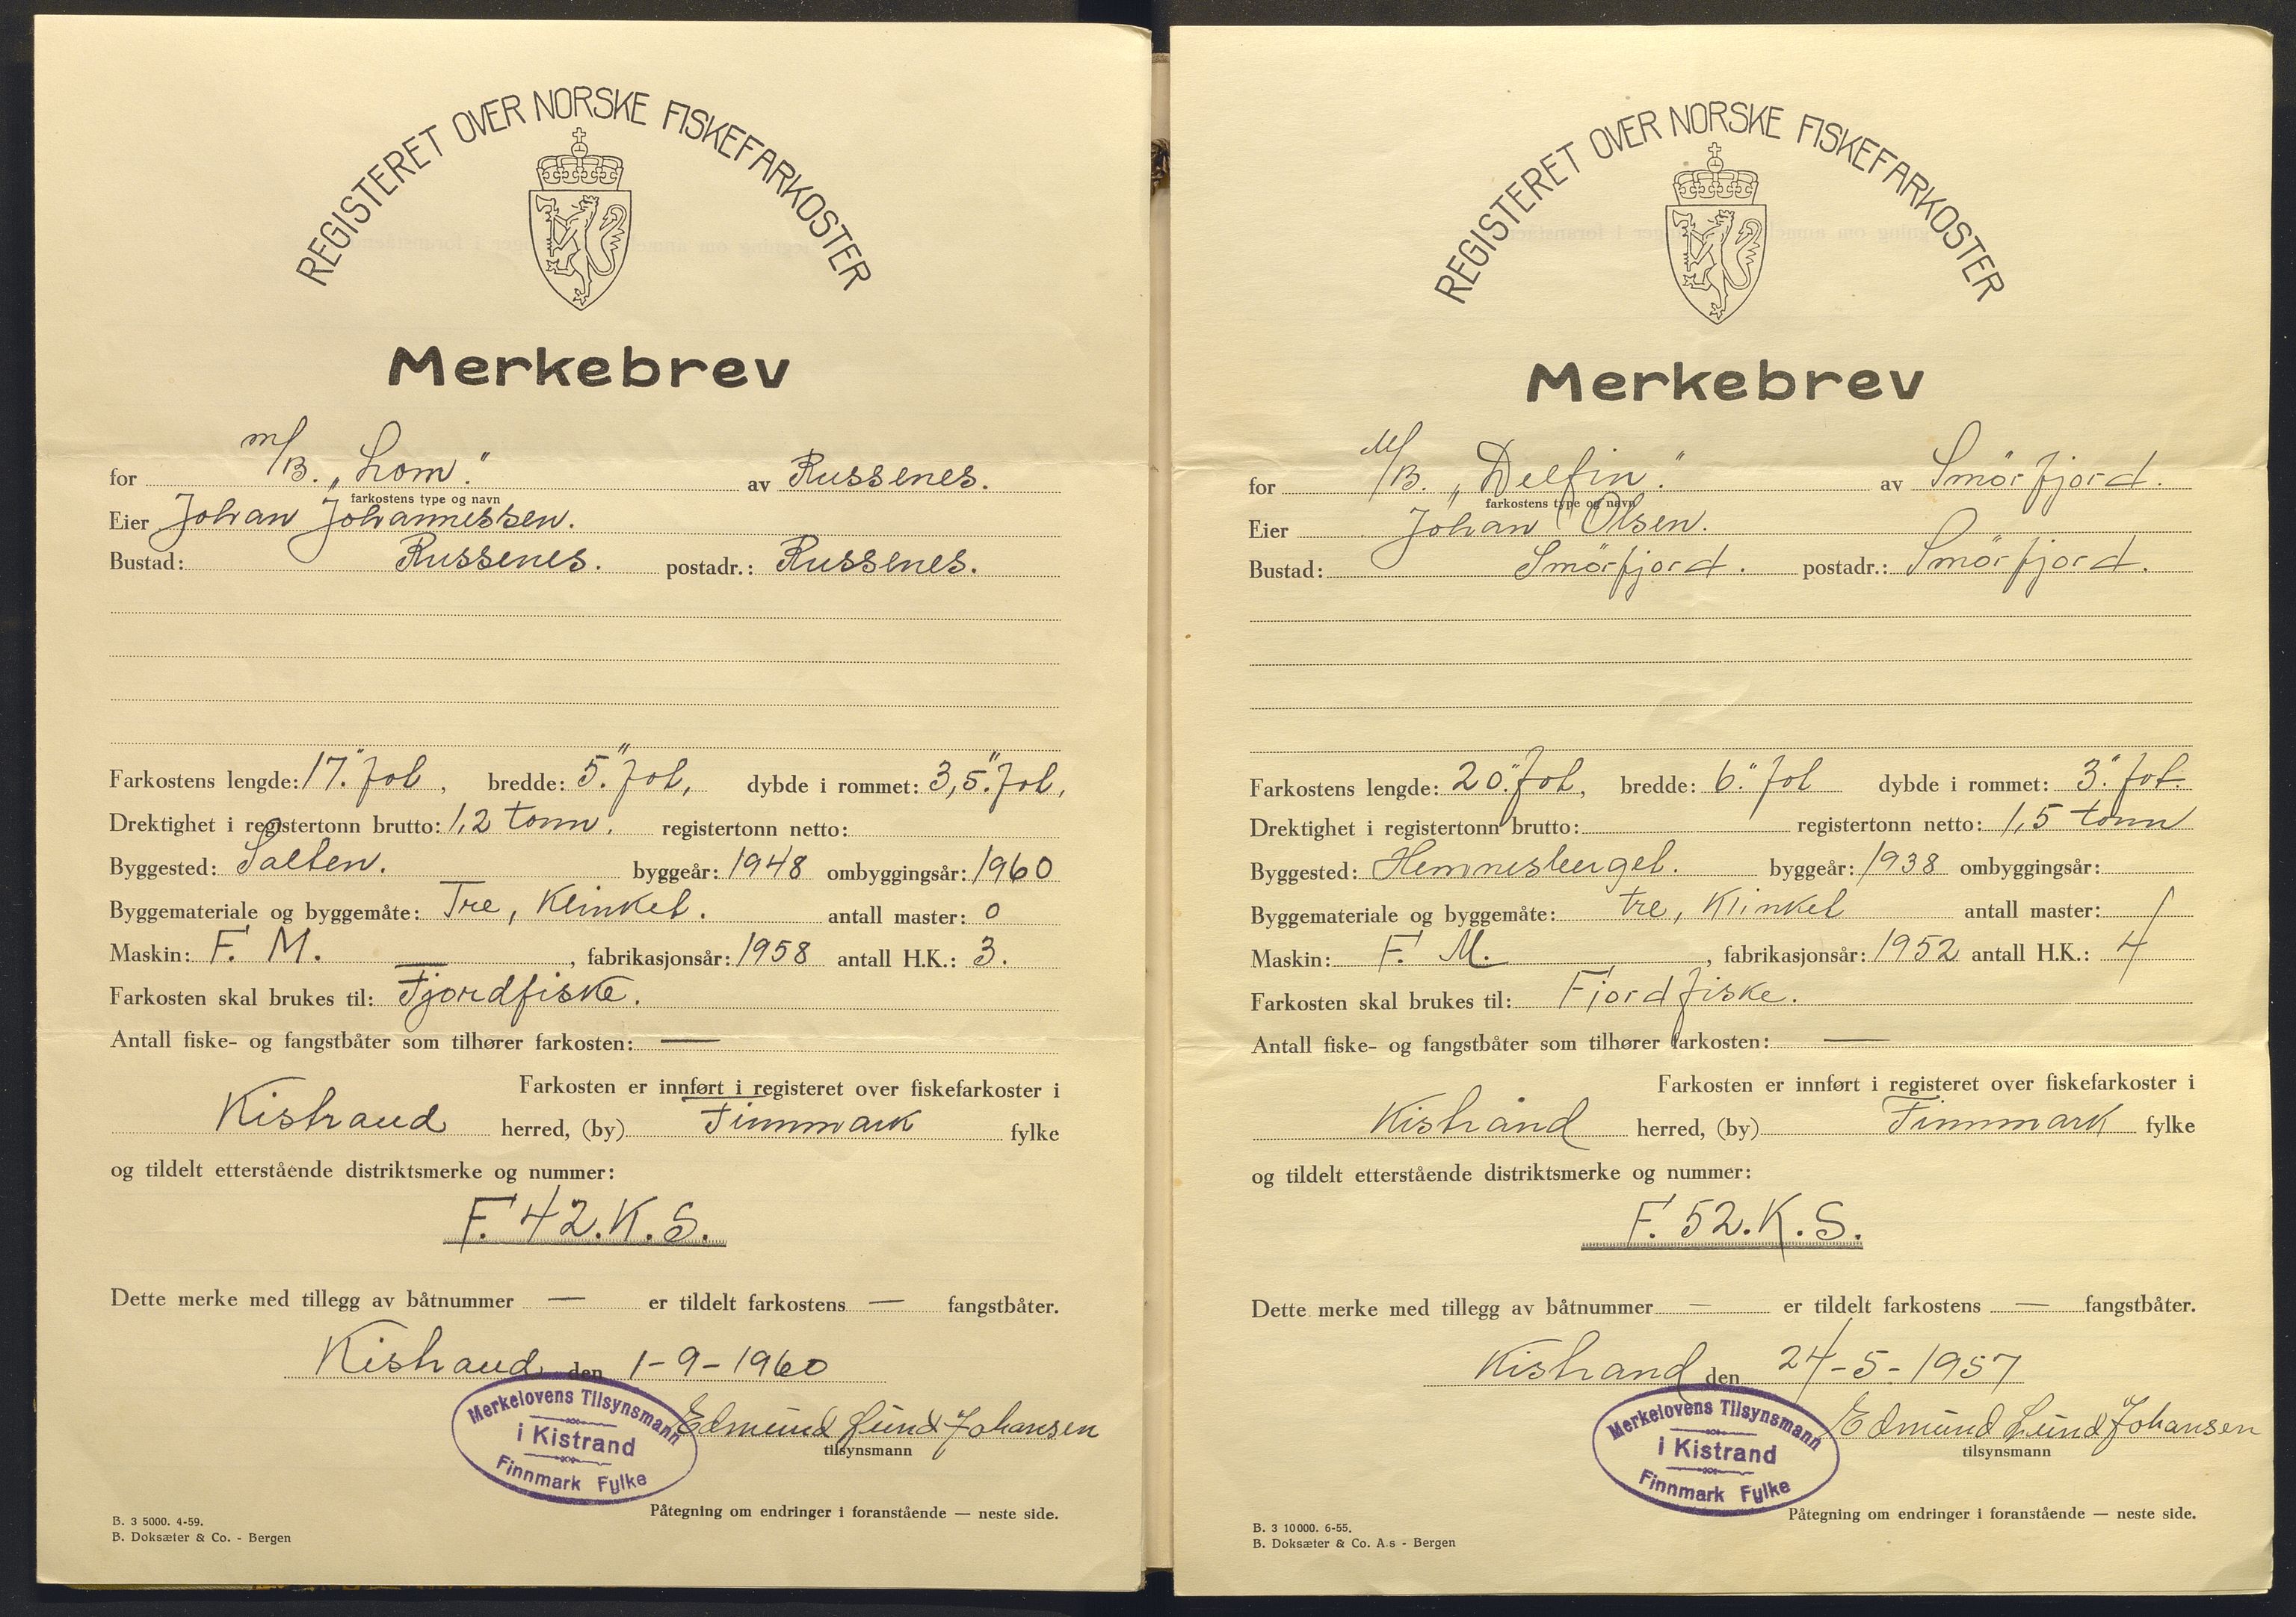 REGISTERET OVER NORSKE FISKEFARKOSTER
Merkebrev
for M/B. „Lom“. av Russenes.
farkostens type og navn
Eier Johan Johannessen.
Bustad: Russenes. postadr.: Russenes.
Farkostens lengde: 17." fot, bredde: 5." fot, dybde i rommet: 3,5." fot,
Drektighet i registertonn brutto: 1,2 tonn. registertonn netto:
Byggested: Salten. byggeår: 1948 ombyggingsår: 1960
Byggemateriale og byggemåte: Tre, Klinket. antall master: 0
Maskin: F. M. , fabrikasjonsår: 1958 antall H.K.: 3.
Farkosten skal brukes til: Fjordfiske.
Antall fiske- og fangstbåter som tilhører farkosten: —
Farkosten er innført i registeret over fiskefarkoster i
Kistrand herred, (by) Finnmark fylke
og tildelt etterstående distriktsmerke og nummer:
F. 42. K. S.
Dette merke med tillegg av båtnummer — er tildelt farkostens — fangstbåter.
Kistrand den 1-9-1960
Merkelovens Tilsynsmann
i Kistrand
Finnmark Fylke
Edmund Lund Johansen
tilsynsmann
Påtegning om endringer i foranstående — neste side.
B. 3 5000. 4-59.
B. Doksæter & Co. - Bergen
REGISTERET OVER NORSKE FISKEFARKOSTER
Merkebrev
for M/B. „Delfin“. av Smörfjord.
farkostens type og navn
Eier Johan Olsen.
Bustad: Smörfjord. postadr.: Smörfjord.
Farkostens lengde: 20." fot, bredde: 6." fot dybde i rommet: 3." fot.
Drektighet i registertonn brutto: registertonn netto: 1,5 tonn
Byggested: Hemnesberget. byggeår: 1938 ombyggingsår:
Byggemateriale og byggemåte: tre, Klinket antall master: /
Maskin: F. M. , fabrikasjonsår: 1952 antall H.K.: 4
Farkosten skal brukes til: Fjordfiske.
Antall fiske- og fangstbåter som tilhører farkosten: —
Farkosten er innført i registeret over fiskefarkoster i
Kistrand herred, (by) Finnmark fylke
og tildelt etterstående distriktsmerke og nummer:
F. 52. K. S.
Dette merke med tillegg av båtnummer — er tildelt farkostens — fangstbåter.
Kistrand den 24-5-1957
Merkelovens Tilsynsmann
i Kistrand
Finnmark Fylke
Edmund Lund Johansen
tilsynsmann
Påtegning om endringer i foranstående — neste side.
B. 3 10000. 6-55.
B. Doksæter & Co. A.s - Bergen